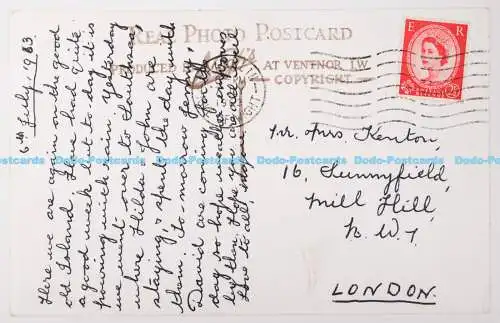 REAL PHOTO POSTCARD
PRODUCED
AT VENTNOR I.W
COPYRIGHT
E R
6th July, 1953
Here we are again on the good
old Island. Have had quite
a good week but to-day it is
pouring with rain. Yesterday
we went over to
where Hilda & John are
staying, & spent the day with
them. To-morrow
David are coming for the
day so hope weather
by then. Hope you are all well
Love to all,
Mr. Mrs Kenton,
16, Sunnyfield,
Mill Hill,
N.W.7
LONDON.
Dodo-Postcards Dodo-Postcards Dodo-Postcards